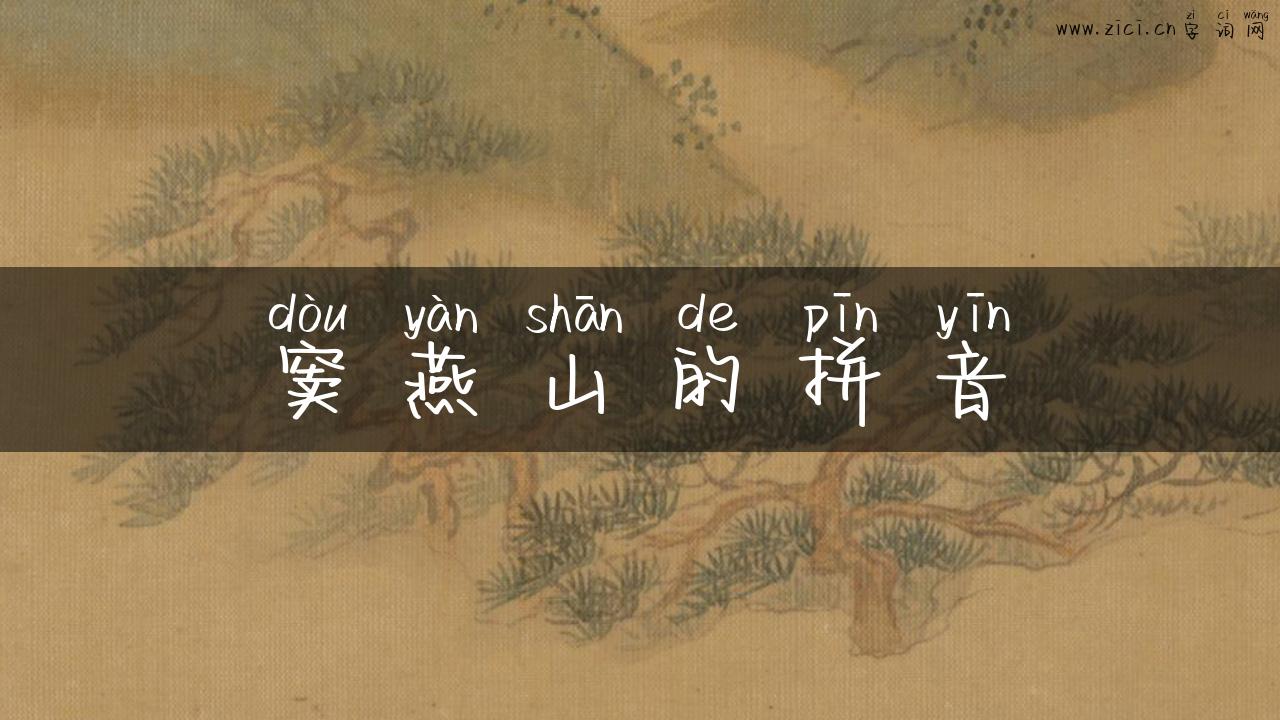 zì cí wǎng
www.zici.cn 字词网
dòu yàn shān de pīn yīn
窦燕山的拼音